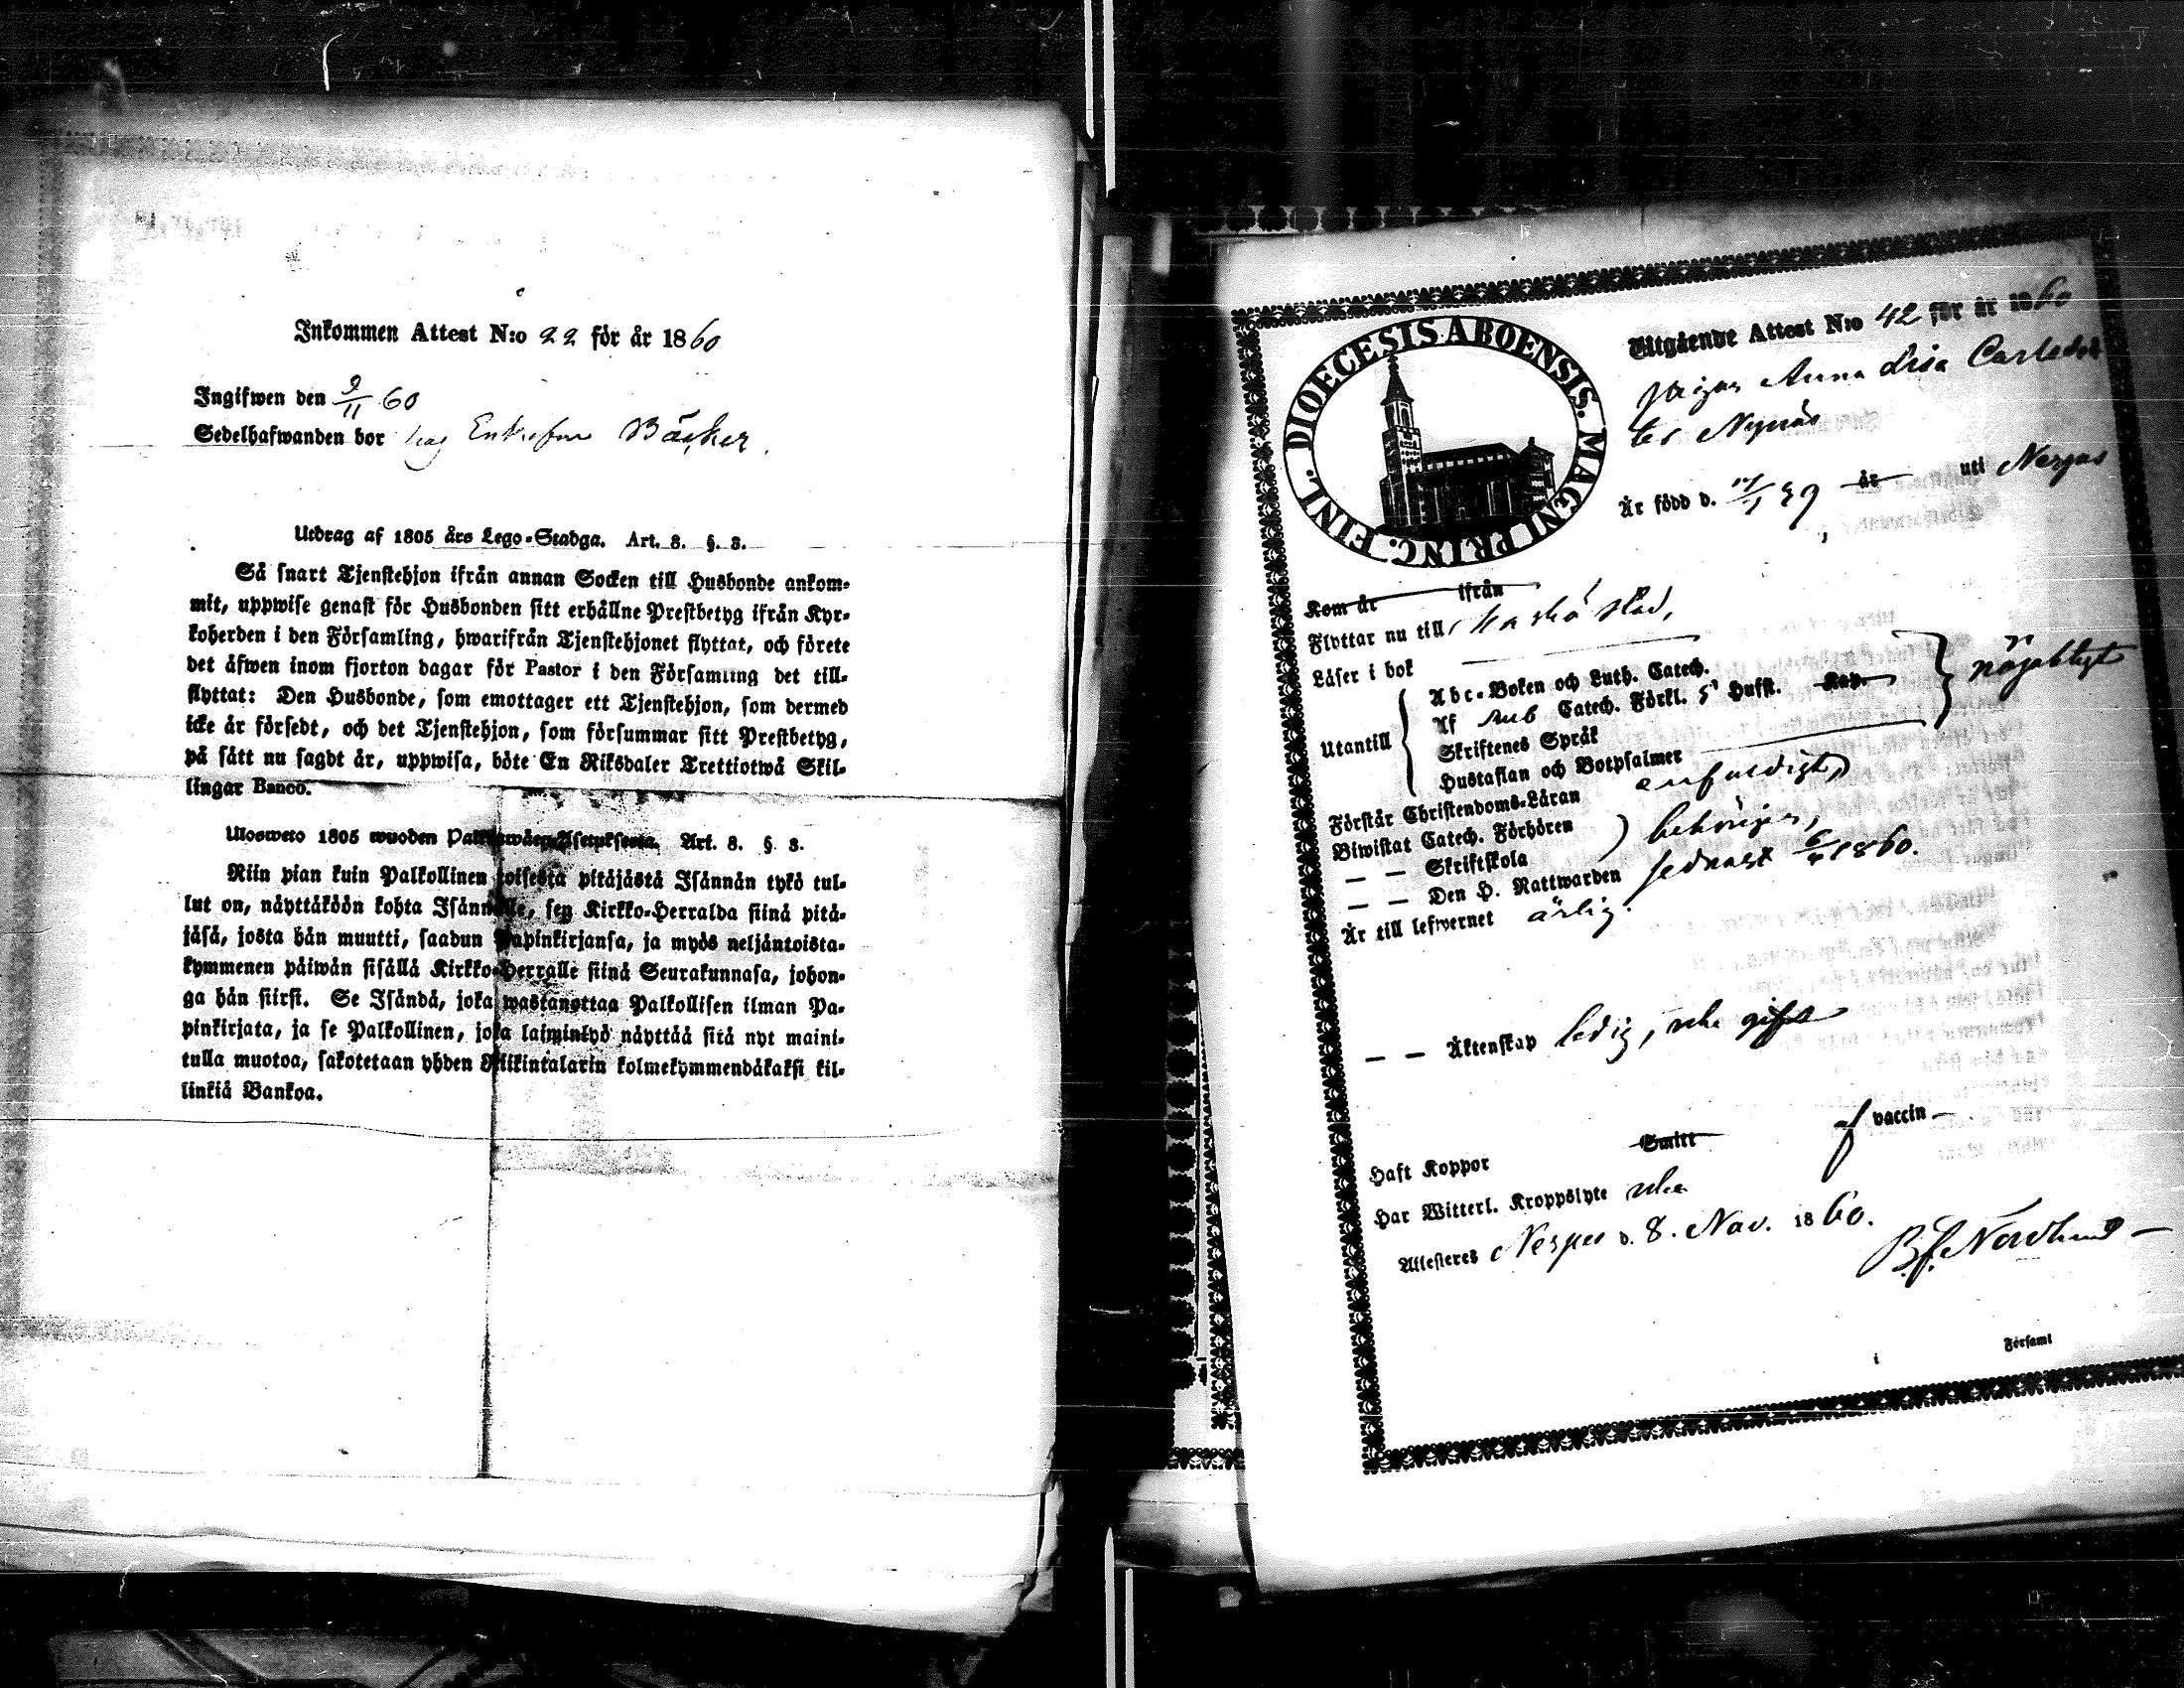 Inkommen Attest N:o 22 för år 1860
Ingifwen den 9/11 60
Sedelhafwanden bor hos Enkefru Bäcker.
Utdrag af 1805 års Lego-Stadga. Art. 8. §. 3.
Så snart Tjenstehjon ifrån annan Socken till Husbonde ankom-
mit, uppwise genast för Husbonden sitt erhållne Prestbetyg ifrån Kyr-
koherden i den Församling, hwarifrån Tjenstehjonet flyttat, och förete
det äfwen inom fjorton dagar för Pastor i den Församling det till-
flyttat: Den Husbonde, som emottager ett Tjenstehjon, som dermed
icke är försedt, och det Tjenstehjon, som försummar sitt Prestbetyg,
på sätt nu sagdt är, uppwisa, böte En Riksdaler Trettiotwå Skil-
lingar Banco.
Ulosweto 1805 wuoden Art. 8. § 3.
Niin pian kuin Palkollinen toisesta pitäjästä Isännän tykö tul-
lut on, näyttäköön kohta Isännälle, sen Kirkko-Herralda siinä pitä-
jäsä, josta hän muutti, saadun Papinkirjansa, ja myös neljäntoista-
kymmenen päiwän sisällä Kirkko-Herralle siinä Seurakunnasa, johon-
ga hän siirsi. Se Isändä, joka wastanottaa Palkollisen ilman Pa-
pinkirjata, ja se Palkollinen, joka laiminlyö näyttää sitä nyt maini-
tulla muotoa, sakotetaan yhden Riikintalarin kolmekymmendäkaksi kil-
linkiä Bankoa.
DIOECESIS ABOENSIS. MAGNI PRINC. FINL.
Utgående Attest N:o 42 för år 1860
Pigan Anna Lisa Carlsdot
ter Nynäs
Är född d. 39 år uti Nerpes
Kom år ifrån
Flyttar nu till Kaskö stad,
Läser i bok
Utantill
Abc-Boken och Luth. Catech.
Af Catech. Förkl. 5 Hufst. Kap.
Skriftenes Språk
Hustaflan och Botpsalmer
nöjaktigt
Förstår Christendoms-Läran enfaldigt
Biwistat Catech. Förhören
— — Skriftskola behörigen,
— — Den H. Nattwarden sednast 1860.
Är till lefwernet ärlig.
— — Äktenskap ledig, icke gift
Haft Koppor Smitt af vaccin
Har Witterl. Kroppslyte icke
Attesteres Nerpes d. 8. Nov. 1860.
B.J. Nordlund
i Församl